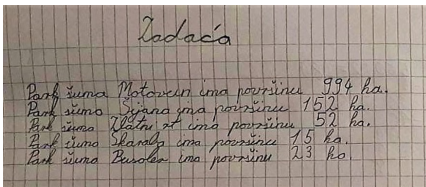 Zadaća
Park šuma Motovun ima površinu 994 ha.
Park šuma Sijana ima površinu 152 ha.
Park šuma Zlatni rt ima površinu 52 ha.
Park šuma Škaraba ima površinu 15 ha.
Park šuma Busoler ima površinu 23 ha.